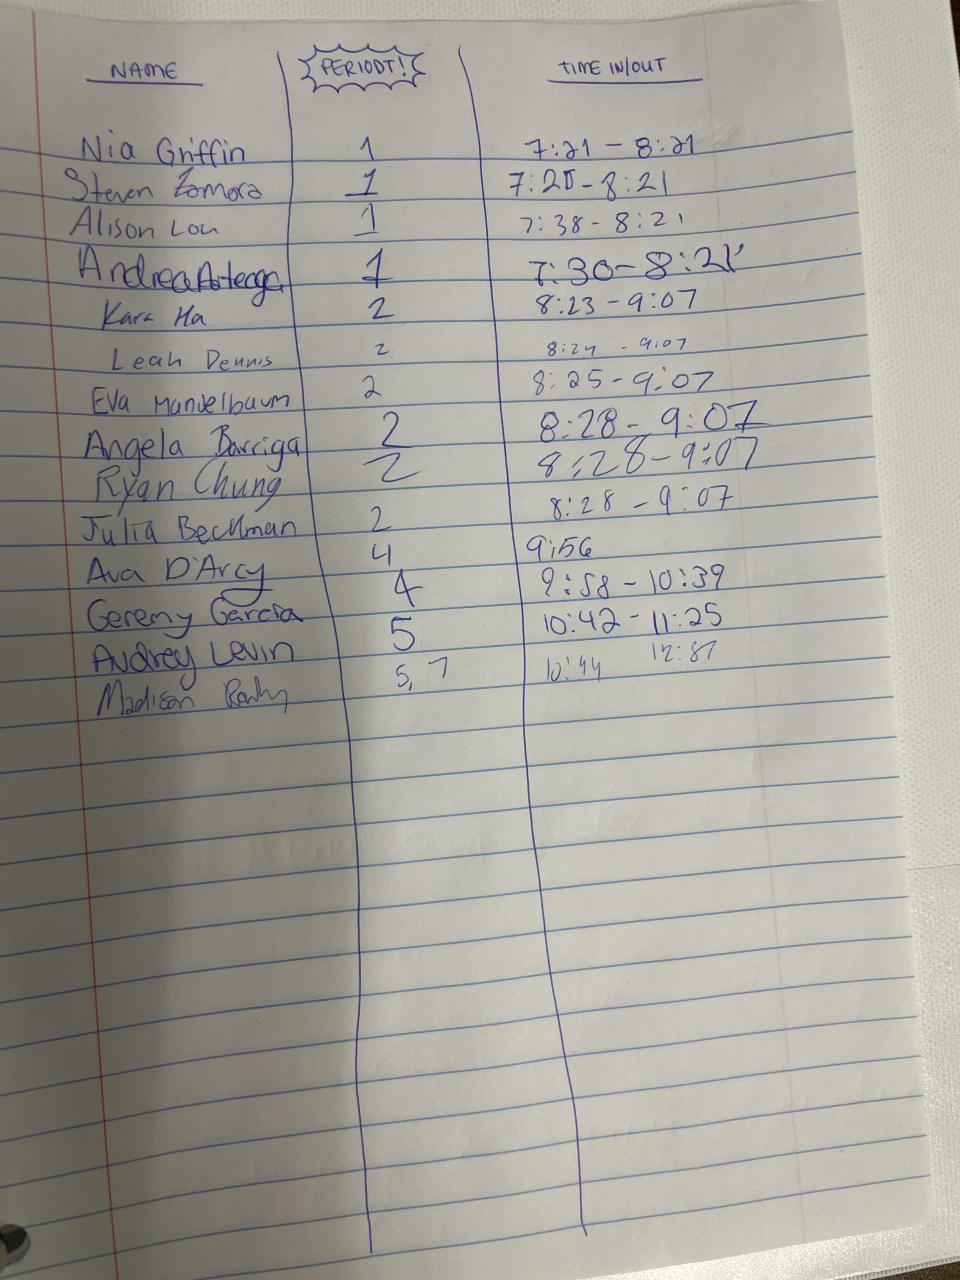 NAME PERIODT! TIME IN/OUT
Nia Griffin 1 7:21 - 8:21
Steven Zamora 1 7:20 - 8:21
Alison Lou 1 7:38 - 8:21
Andrea Arteaga 1 7:30 - 8:21
Kara Ha 2 8:23 - 9:07
Leah Dennis 2 8:24 - 9:07
Eva Mandelbaum 2 8:25 - 9:07
Angela Barriga 2 8:28 - 9:07
Ryan Chung 2 8:28 - 9:07
Julia Beckman 2 8:28 - 9:07
Ava D'Arcy 4 9:56
Geremy Garcia 4 9:58 - 10:39
Audrey Levin 5 10:42 - 11:25
Madison 5, 7 10:44